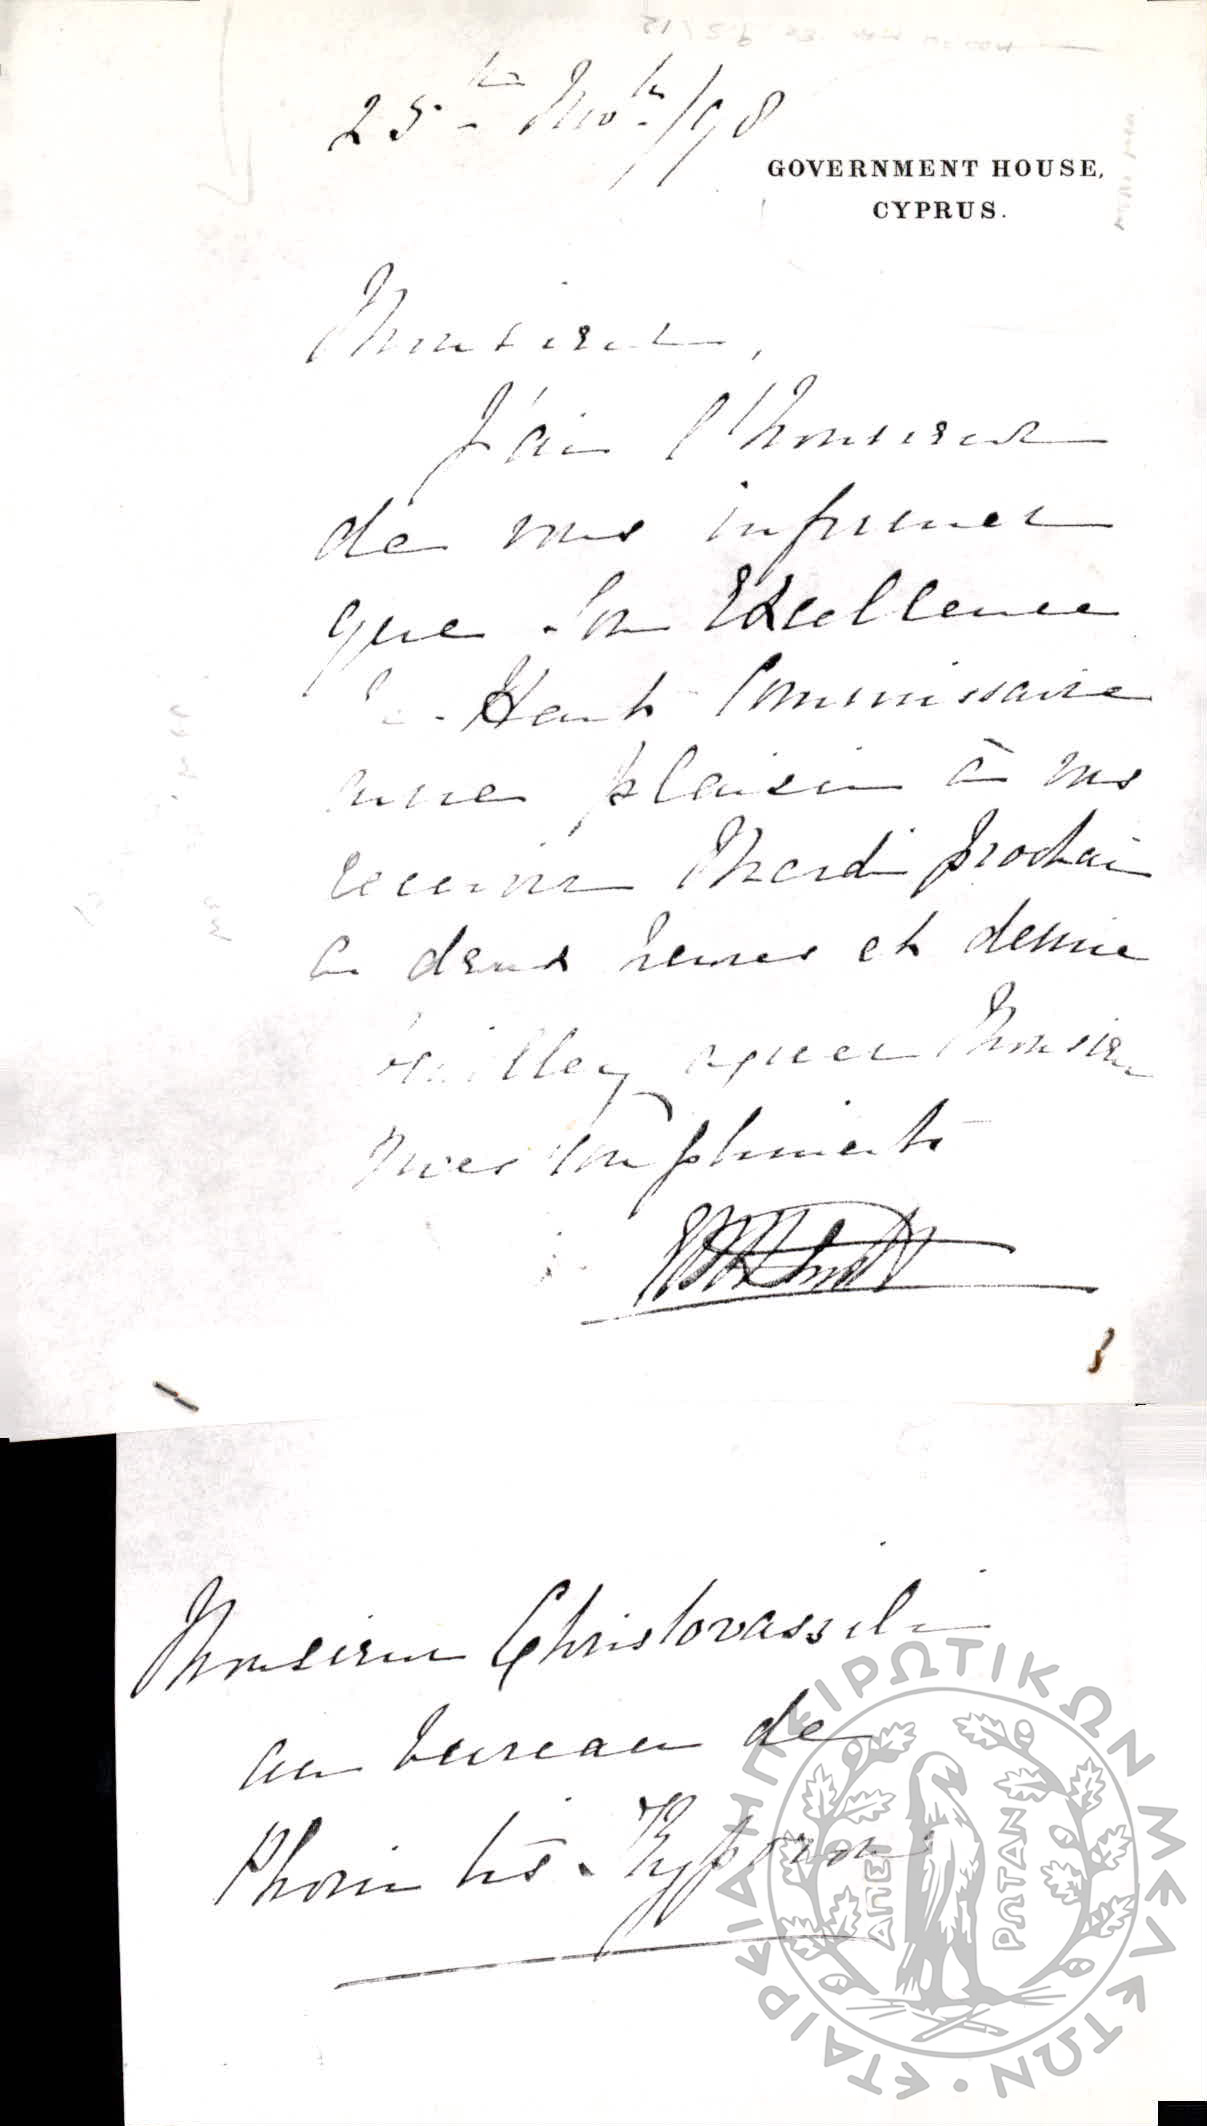 25th Novbr/98
GOVERNMENT HOUSE,
CYPRUS.
Monsieur,
J'ai l'honneur
de vous informer
que Son Excellence
le Haut Commissaire
aura plaisir à vous
recevoir Mardi prochain
à deux heures et demie
Veuillez agréer Monsieur
mes compliments
Monsieur Christovassili
au bureau de
Phoni tis Kyprou
ΕΤΑΙΡΕΙΑ ΗΠΕΙΡΩΤΙΚΩΝ ΜΕΛΕΤΩΝ
ΑΠΕΙ
ΡΩΤΑΝ